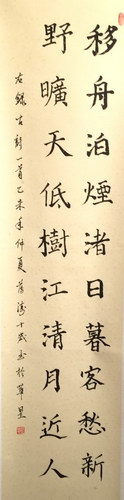 移舟泊煙渚日暮客愁新
野曠天低樹江清月近人
右錄古詩一首乙未年仲夏蔣濤十歲書於草堂